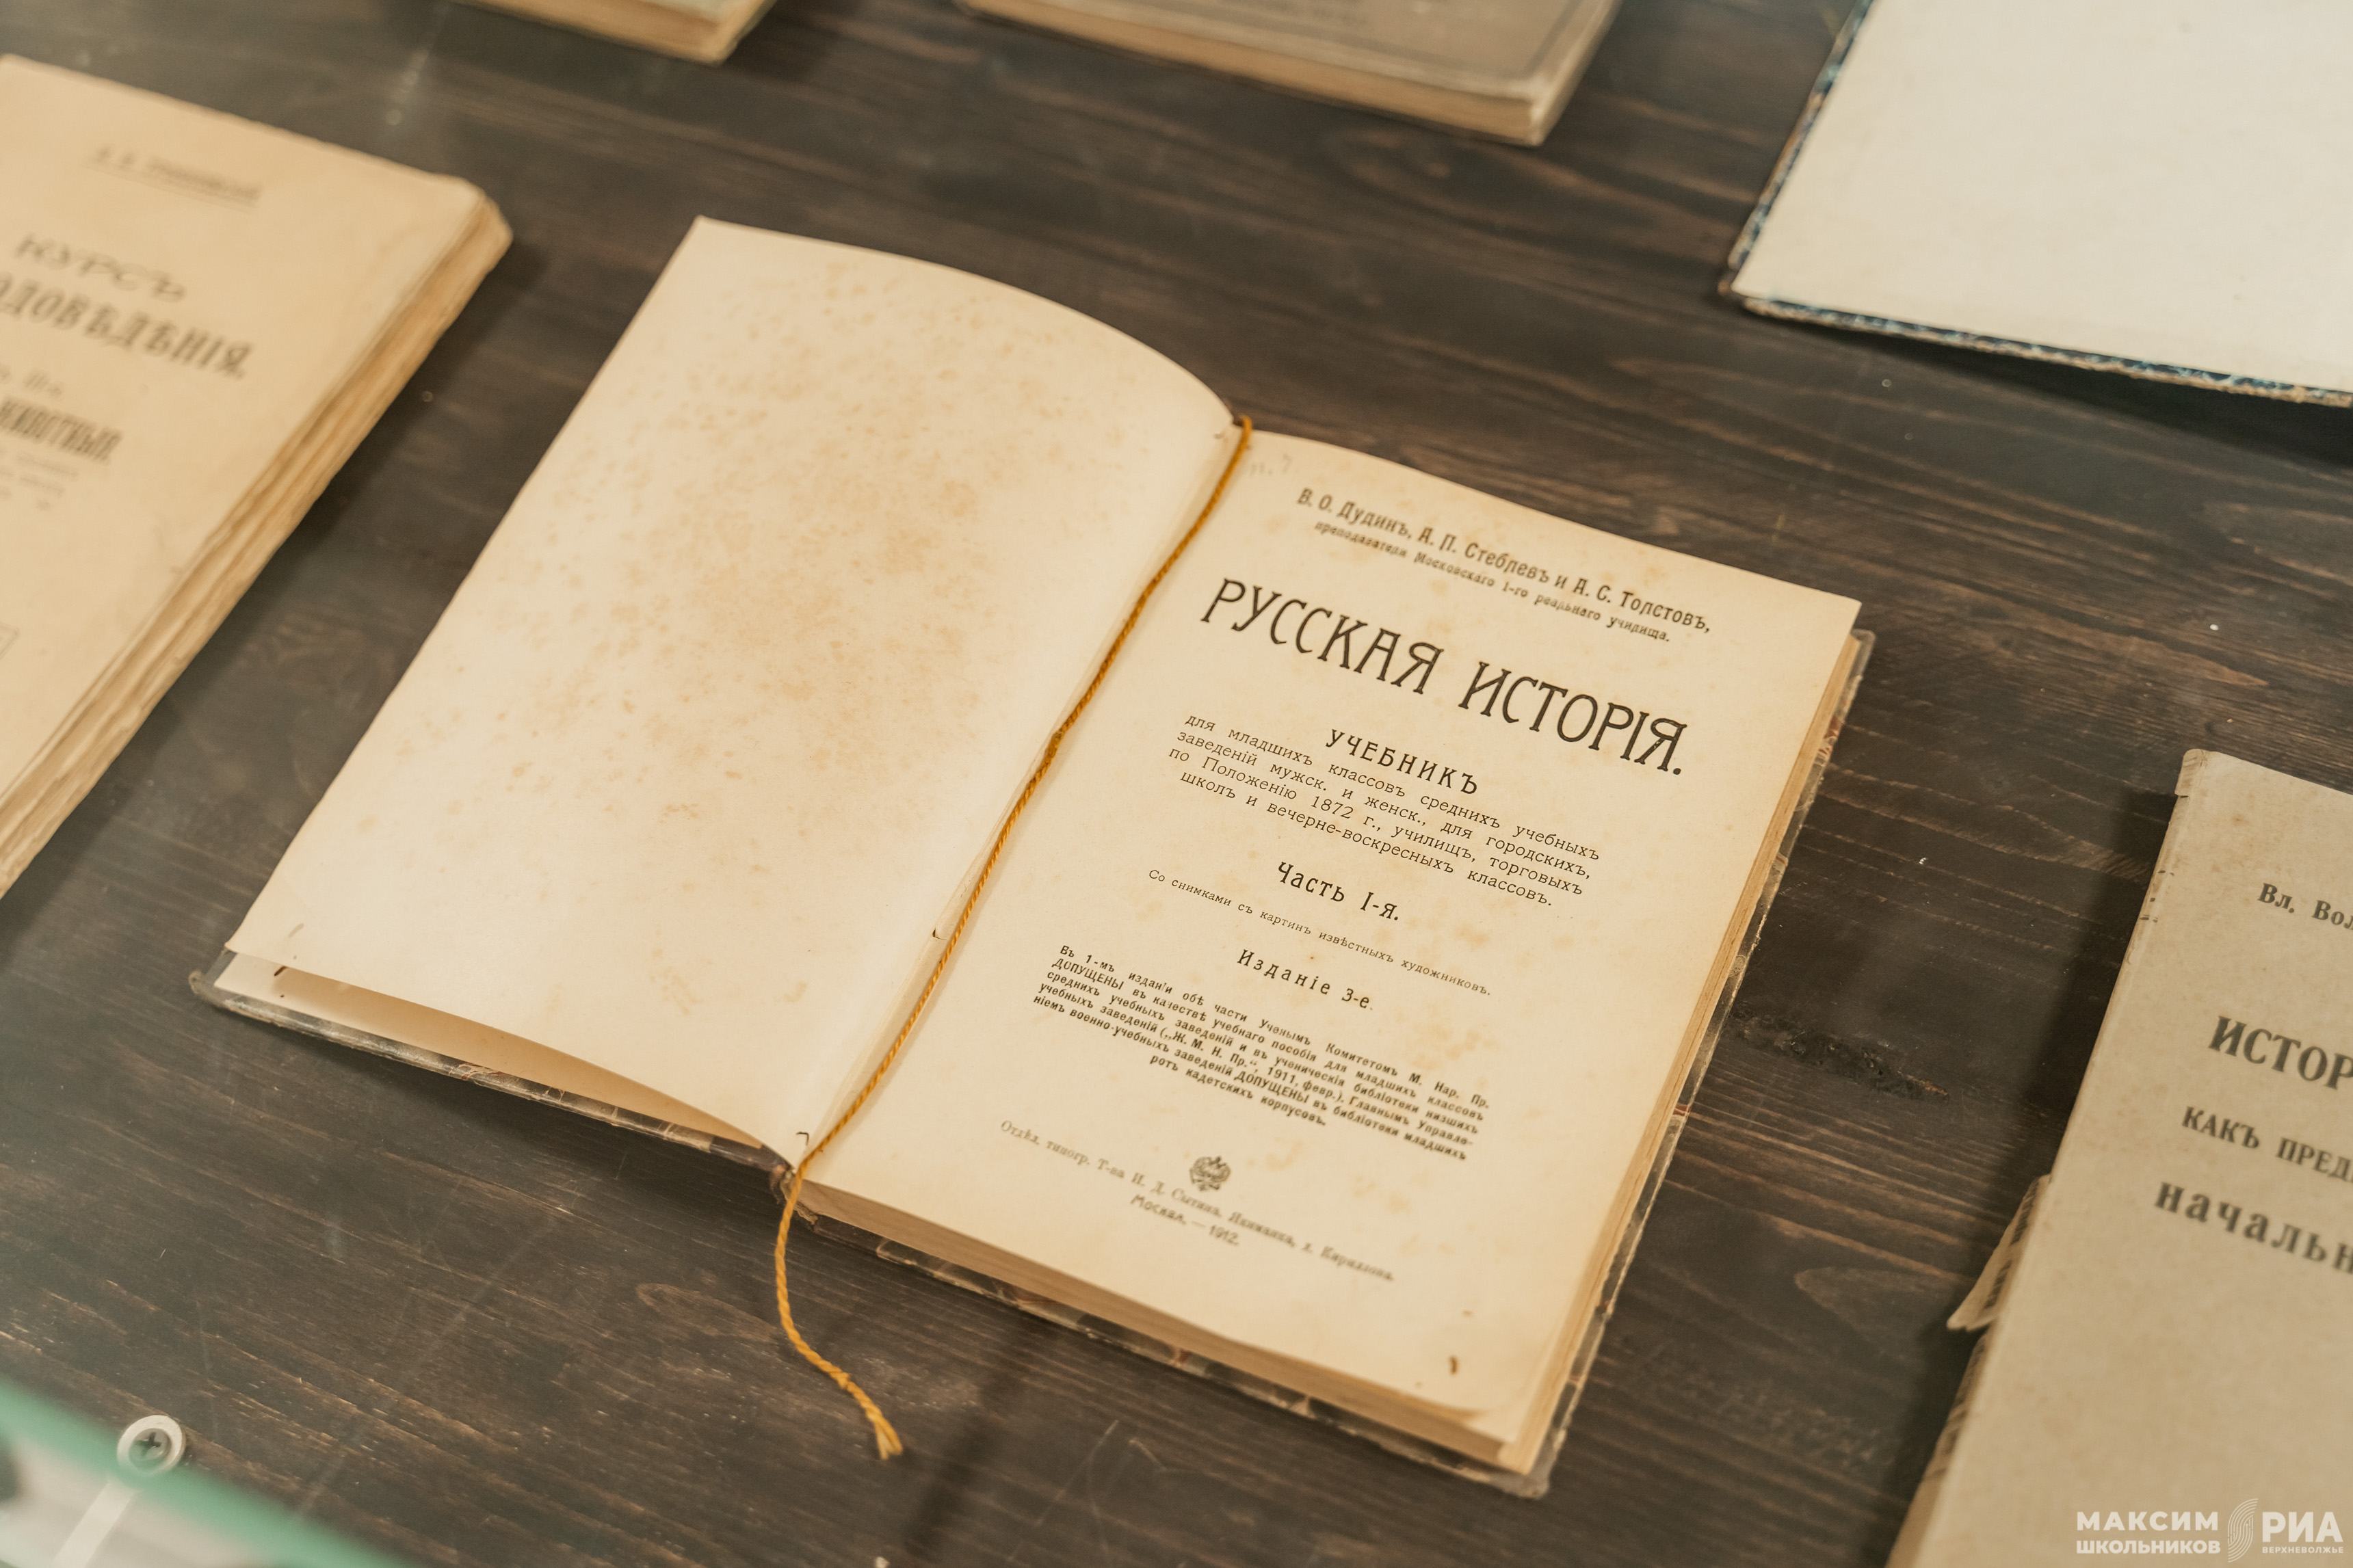 КУРСЪ
ОДОВѢДѢНІЯ.
ЖИВОТНЫЯ.
В. О. Дудинъ, А. П. Стеблевъ и А. С. Толстовъ,
преподаватели Московскаго 1-го реальнаго училища.
РУССКАЯ ИСТОРІЯ.
УЧЕБНИКЪ
для младшихъ классовъ среднихъ учебныхъ
заведеній мужск. и женск., для городскихъ,
по Положенію 1872 г., училищъ, торговыхъ
школъ и вечерне-воскресныхъ классовъ.
Часть I-я.
Со снимками съ картинъ извѣстныхъ художниковъ.
Изданіе 3-е.
Въ 1-мъ изданіи обѣ части Ученымъ Комитетомъ М. Нар. Пр.
ДОПУЩЕНЫ въ качествѣ учебнаго пособія для младшихъ классовъ
среднихъ учебныхъ заведеній и въ ученическія библіотеки низшихъ
учебныхъ заведеній („Ж. М. Н. Пр.“, 1911, февр.). Главнымъ Управле-
ніемъ военно-учебныхъ заведеній ДОПУЩЕНЫ въ библіотеки младшихъ
ротъ кадетскихъ корпусовъ.
Отдѣл. типогр. Т-ва И. Д. Сытина, Якиманка, д. Кириллова.
Москва. — 1912.
Вл. Вол
ИСТОР
КАКЪ ПРЕД
начальн
МАКСИМ
ШКОЛЬНИКОВ
РИА
ВЕРХНЕВОЛЖЬЕ